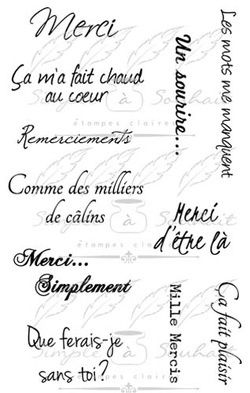 Merci
Ça m'a fait chaud
au coeur
Remerciements
Comme des milliers
de câlins
Merci...
Simplement
Que ferais-je
sans toi ?
Un sourire...
Les mots me manquent
Merci
d'être là
Mille Mercis
Ça fait plaisir
Simple à Souhait
étampes claires
étampes claires
Simple à Souhait